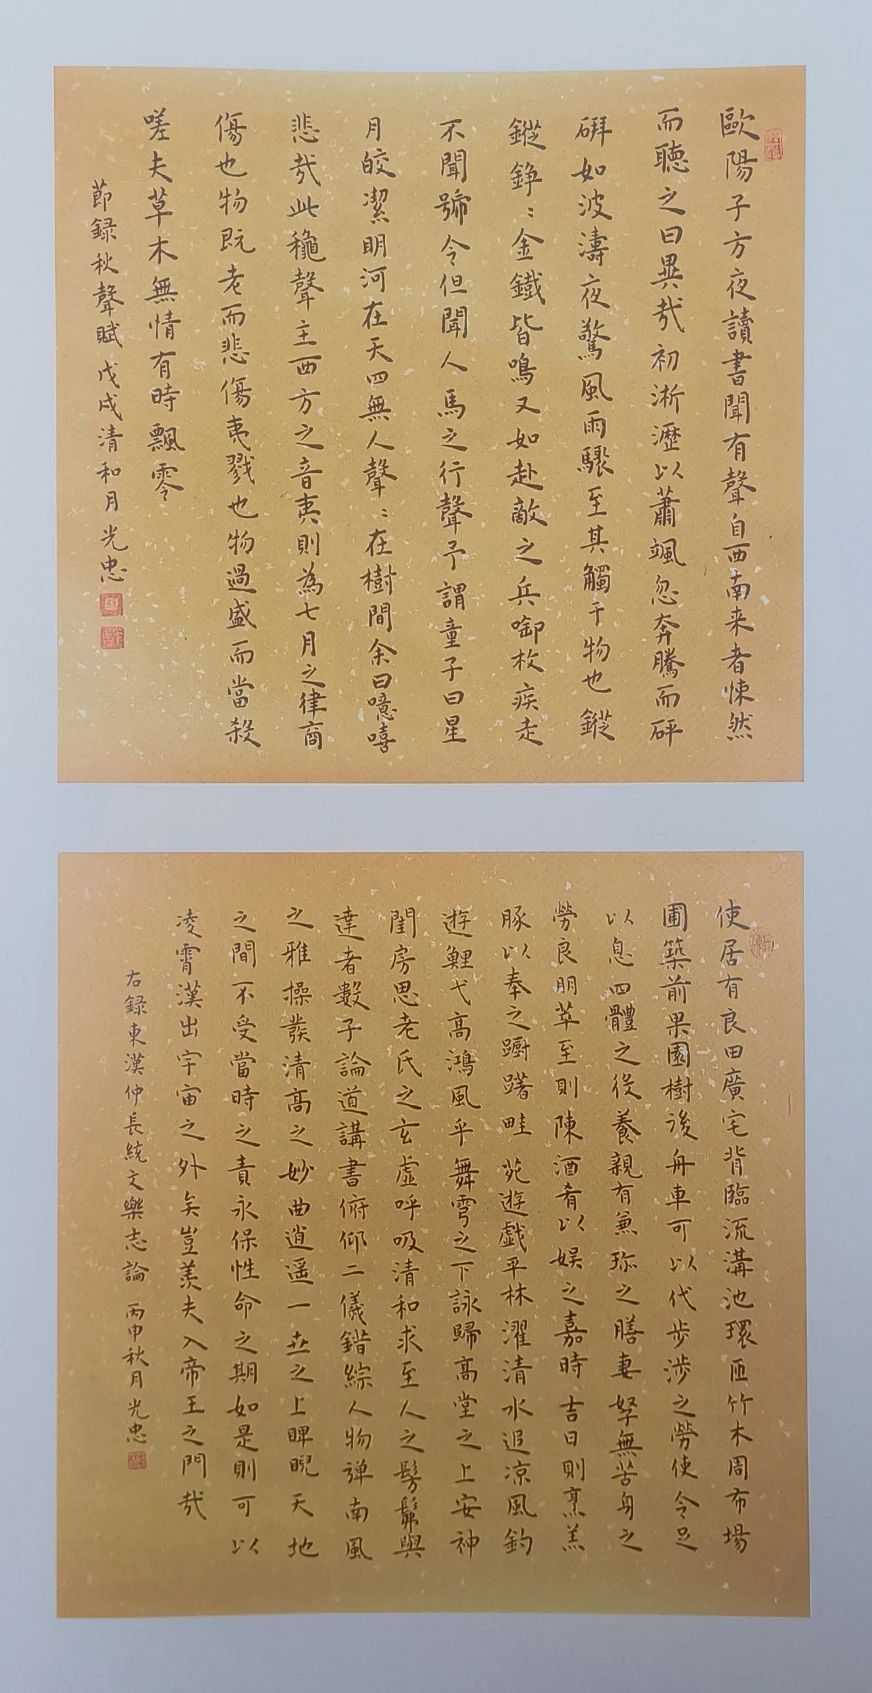 歐陽子方夜讀書聞有聲自西南来者悚然
而聽之曰異哉初淅瀝以蕭颯忽奔騰而砰
硑如波濤夜驚風雨驟至其觸于物也鏦
鏦錚〻金鐵皆鳴又如赴敵之兵啣枚疾走
不聞號令但聞人馬之行聲予謂童子曰星
月皎潔明河在天四無人聲〻在樹間余曰噫嘻
悲哉此穐聲主西方之音夷則為七月之律商
傷也物既老而悲傷夷戮也物過盛而當殺
嗟夫草木無情有時飄零
節録秋聲賦 戊戌清和月 光忠
使居有良田廣宅背臨流溝池環匝竹木周布場
圃築前果園樹後舟車可以代步涉之勞使令足
以息四體之役養親有兼珎之膳妻孥無苦身之
勞良朋萃至則陳酒肴以娱之嘉時吉日則烹羔
豚以奉之蹰躇畦苑遊戲平林濯清水追凉風釣
遊鯉弋高鴻風乎舞雩之下詠歸高堂之上安神
閨房思老氏之玄虚呼吸清和求至人之髣髴與
達者數子論道講書俯仰二儀錯綜人物弹南風
之雅操發清高之妙曲逍遥一世之上睥睨天地
之間不受當時之責永保性命之期如是則可以
凌霄漢出宇宙之外矣豈羡夫入帝王之門哉
右録東漢仲長統文樂志論 丙申秋月 光忠